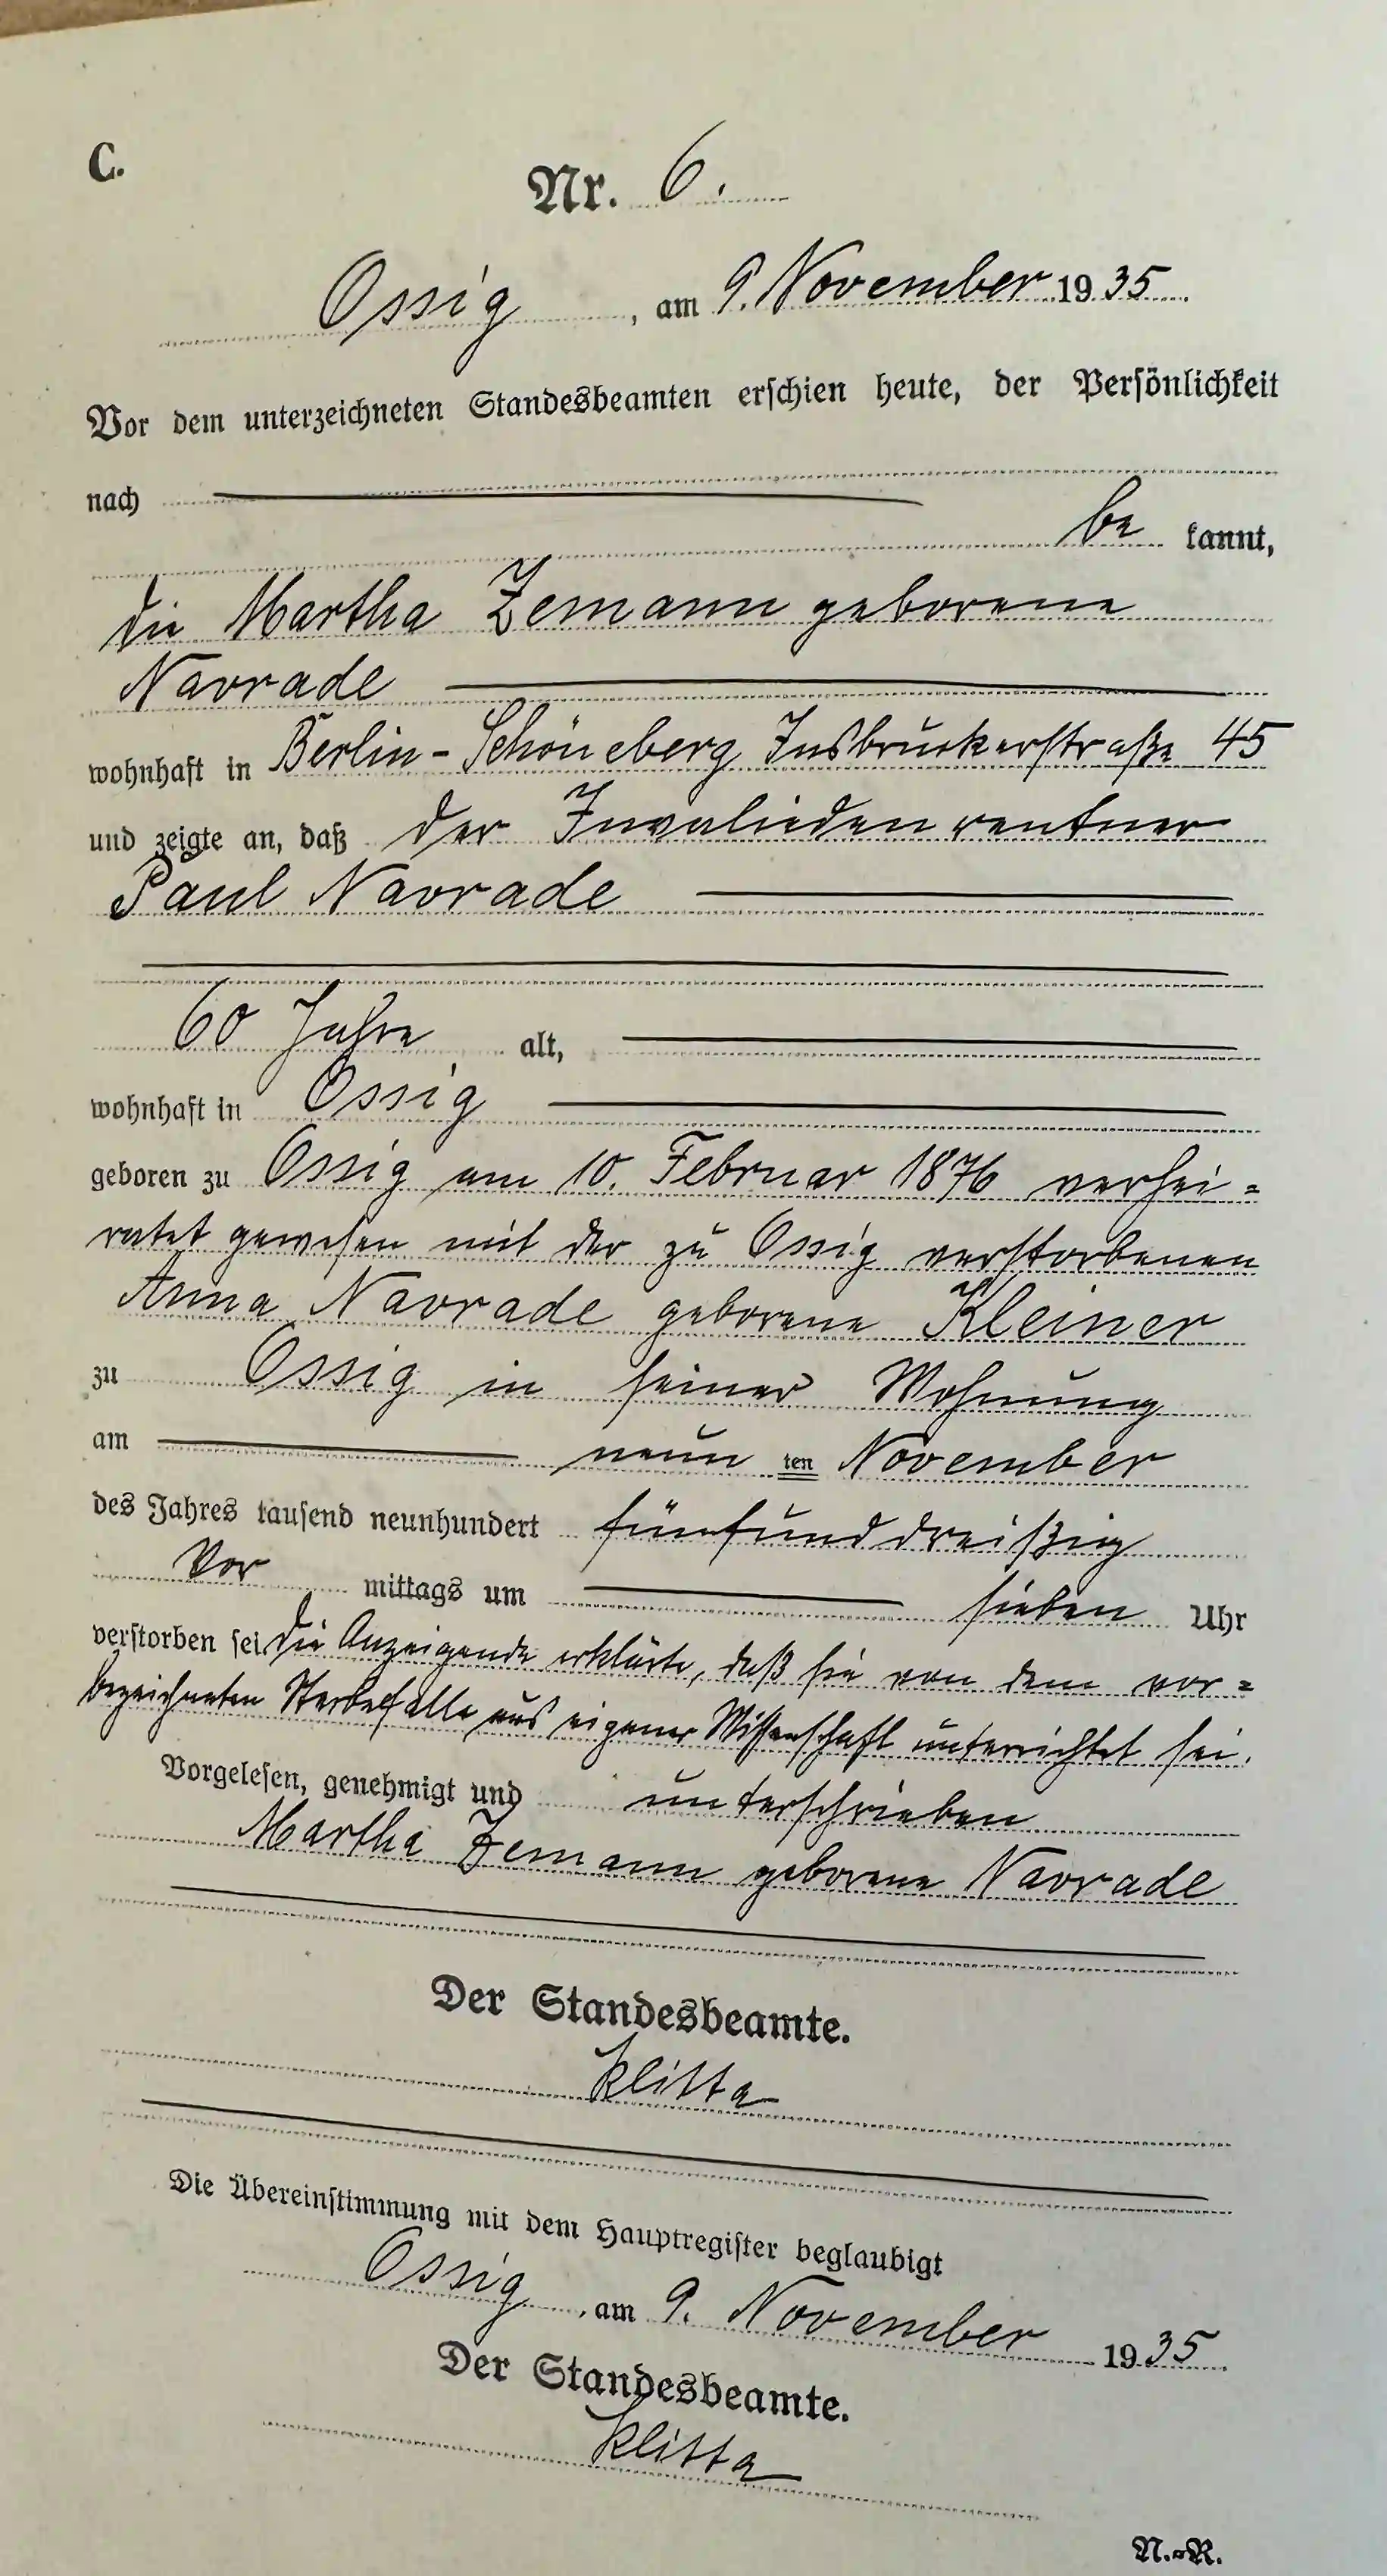 C.
Nr. 6.
Ossig, am 9. November 1935.
Vor dem unterzeichneten Standesbeamten erschien heute, der Persönlichkeit
nach
be kannt,
die Martha Zemann geborene
Navrade
wohnhaft in Berlin-Schöneberg Insbruckerstraße 45
und zeigte an, daß der Invalieden rentner
Paul Navrade
60 Jahre alt,
wohnhaft in Ossig
geboren zu Ossig am 10. Februar 1876 verhei=
ratet gewesen mit der zu Ossig verstorbenen
Anna Navrade geborene Kleiner
zu Ossig in seiner Wohnung
am neun ten November
des Jahres tausend neunhundert fünfunddreißig
Vor mittags um sieben Uhr
verstorben sei. Die Anzeigende erklärte, daß sie von dem vor=
bezeichneten Sterbefalle aus eigener Wissenschaft unterrichtet sei.
Vorgelesen, genehmigt und unterschrieben
Martha Zemann geborene Navrade
Der Standesbeamte.
Klitta
Die Übereinstimmung mit dem Hauptregister beglaubigt
Ossig, am 9. November 1935.
Der Standesbeamte.
Klitta
N.=R.